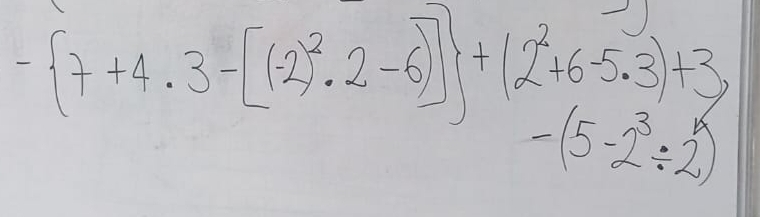 - {7 + 4 . 3 - [(-2)² . 2 - 6)]} + (2² + 6 - 5 . 3) + 3
- (5 - 2³ ÷ 2)